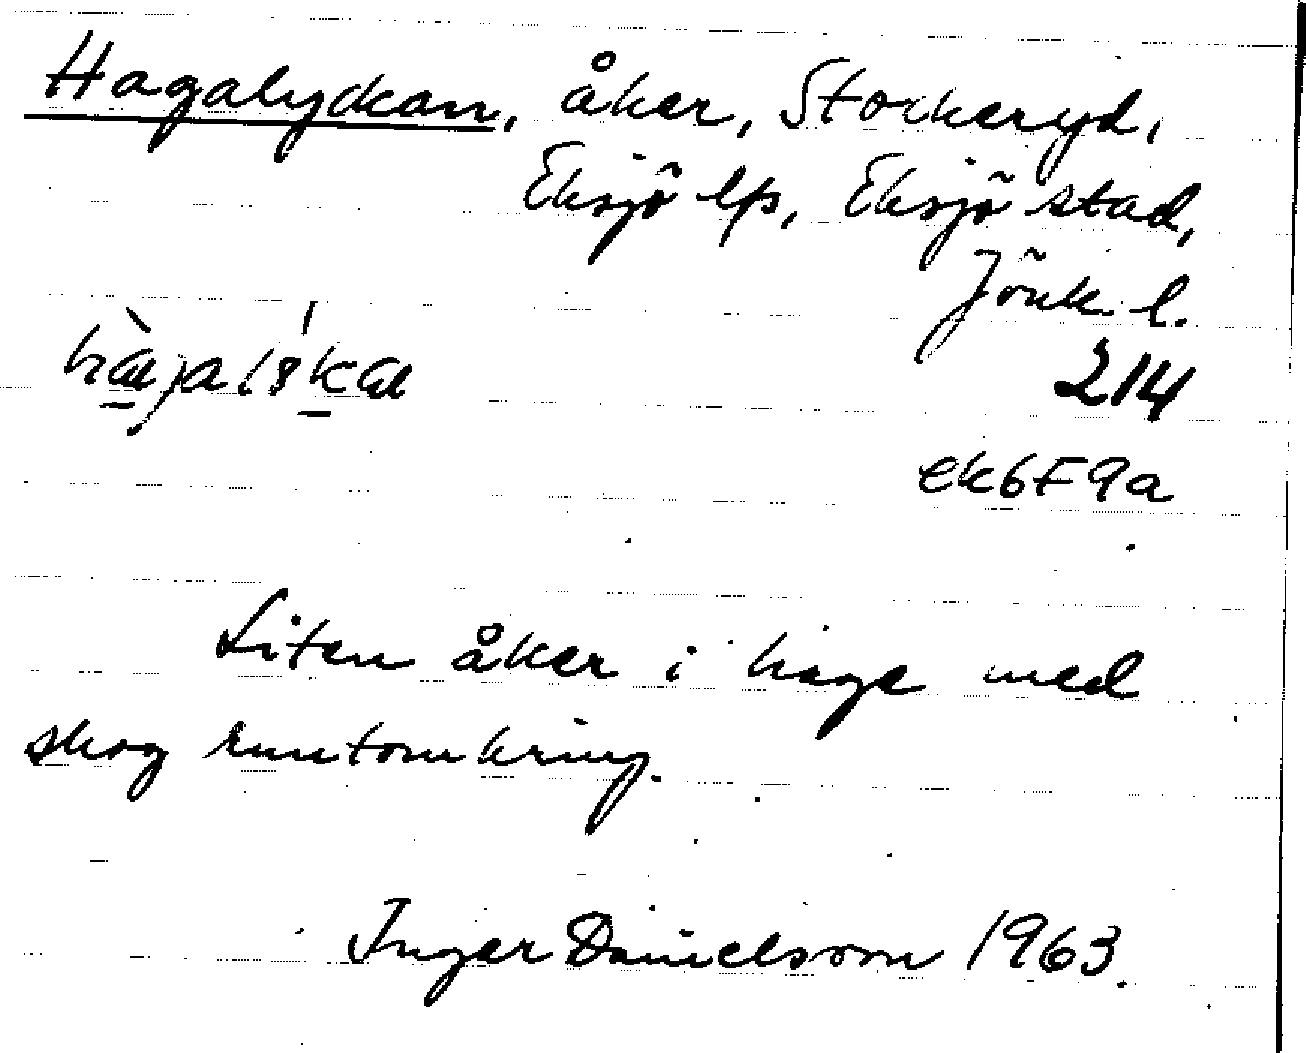 Hagalyckan, åker, Storkeryd,
Eksjö lfs, Eksjö stad,
Jönk. l.
214
ek6F9a
Liten åker i hage med
skog runtomkring.
Inger Danielsson 1963.